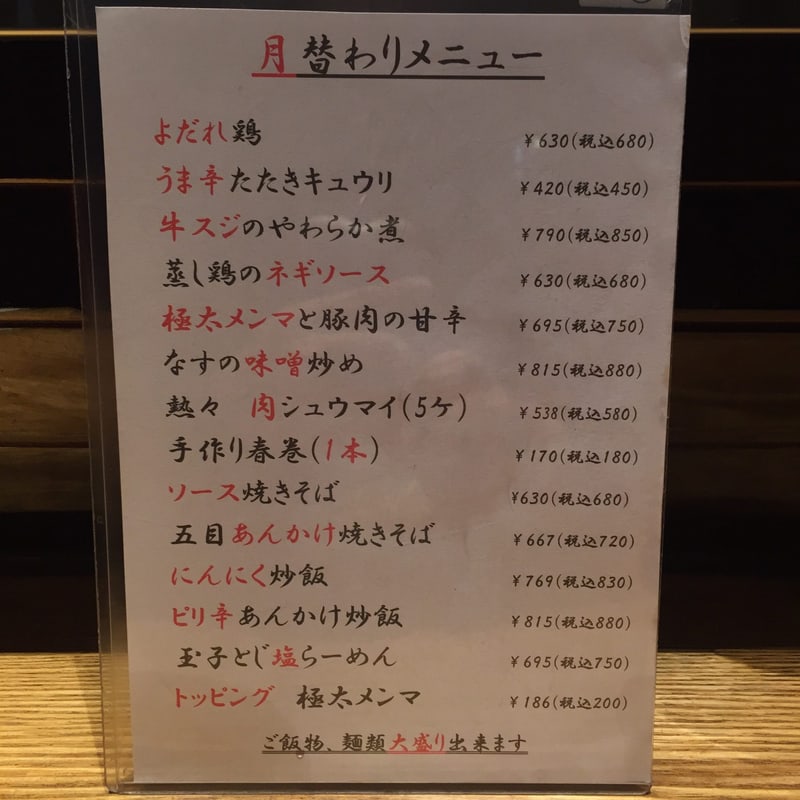 月替わりメニュー
よだれ鶏 ¥630(税込680)
うま辛たたきキュウリ ¥420(税込450)
牛スジのやわらか煮 ¥790(税込850)
蒸し鶏のネギソース ¥630(税込680)
極太メンマと豚肉の甘辛 ¥695(税込750)
なすの味噌炒め ¥815(税込880)
熱々 肉シュウマイ(5ケ) ¥538(税込580)
手作り春巻(1本) ¥170(税込180)
ソース焼きそば ¥630(税込680)
五目あんかけ焼きそば ¥667(税込720)
にんにく炒飯 ¥769(税込830)
ピリ辛あんかけ炒飯 ¥815(税込880)
玉子とじ塩らーめん ¥695(税込750)
トッピング 極太メンマ ¥186(税込200)
ご飯物、麺類大盛り出来ます